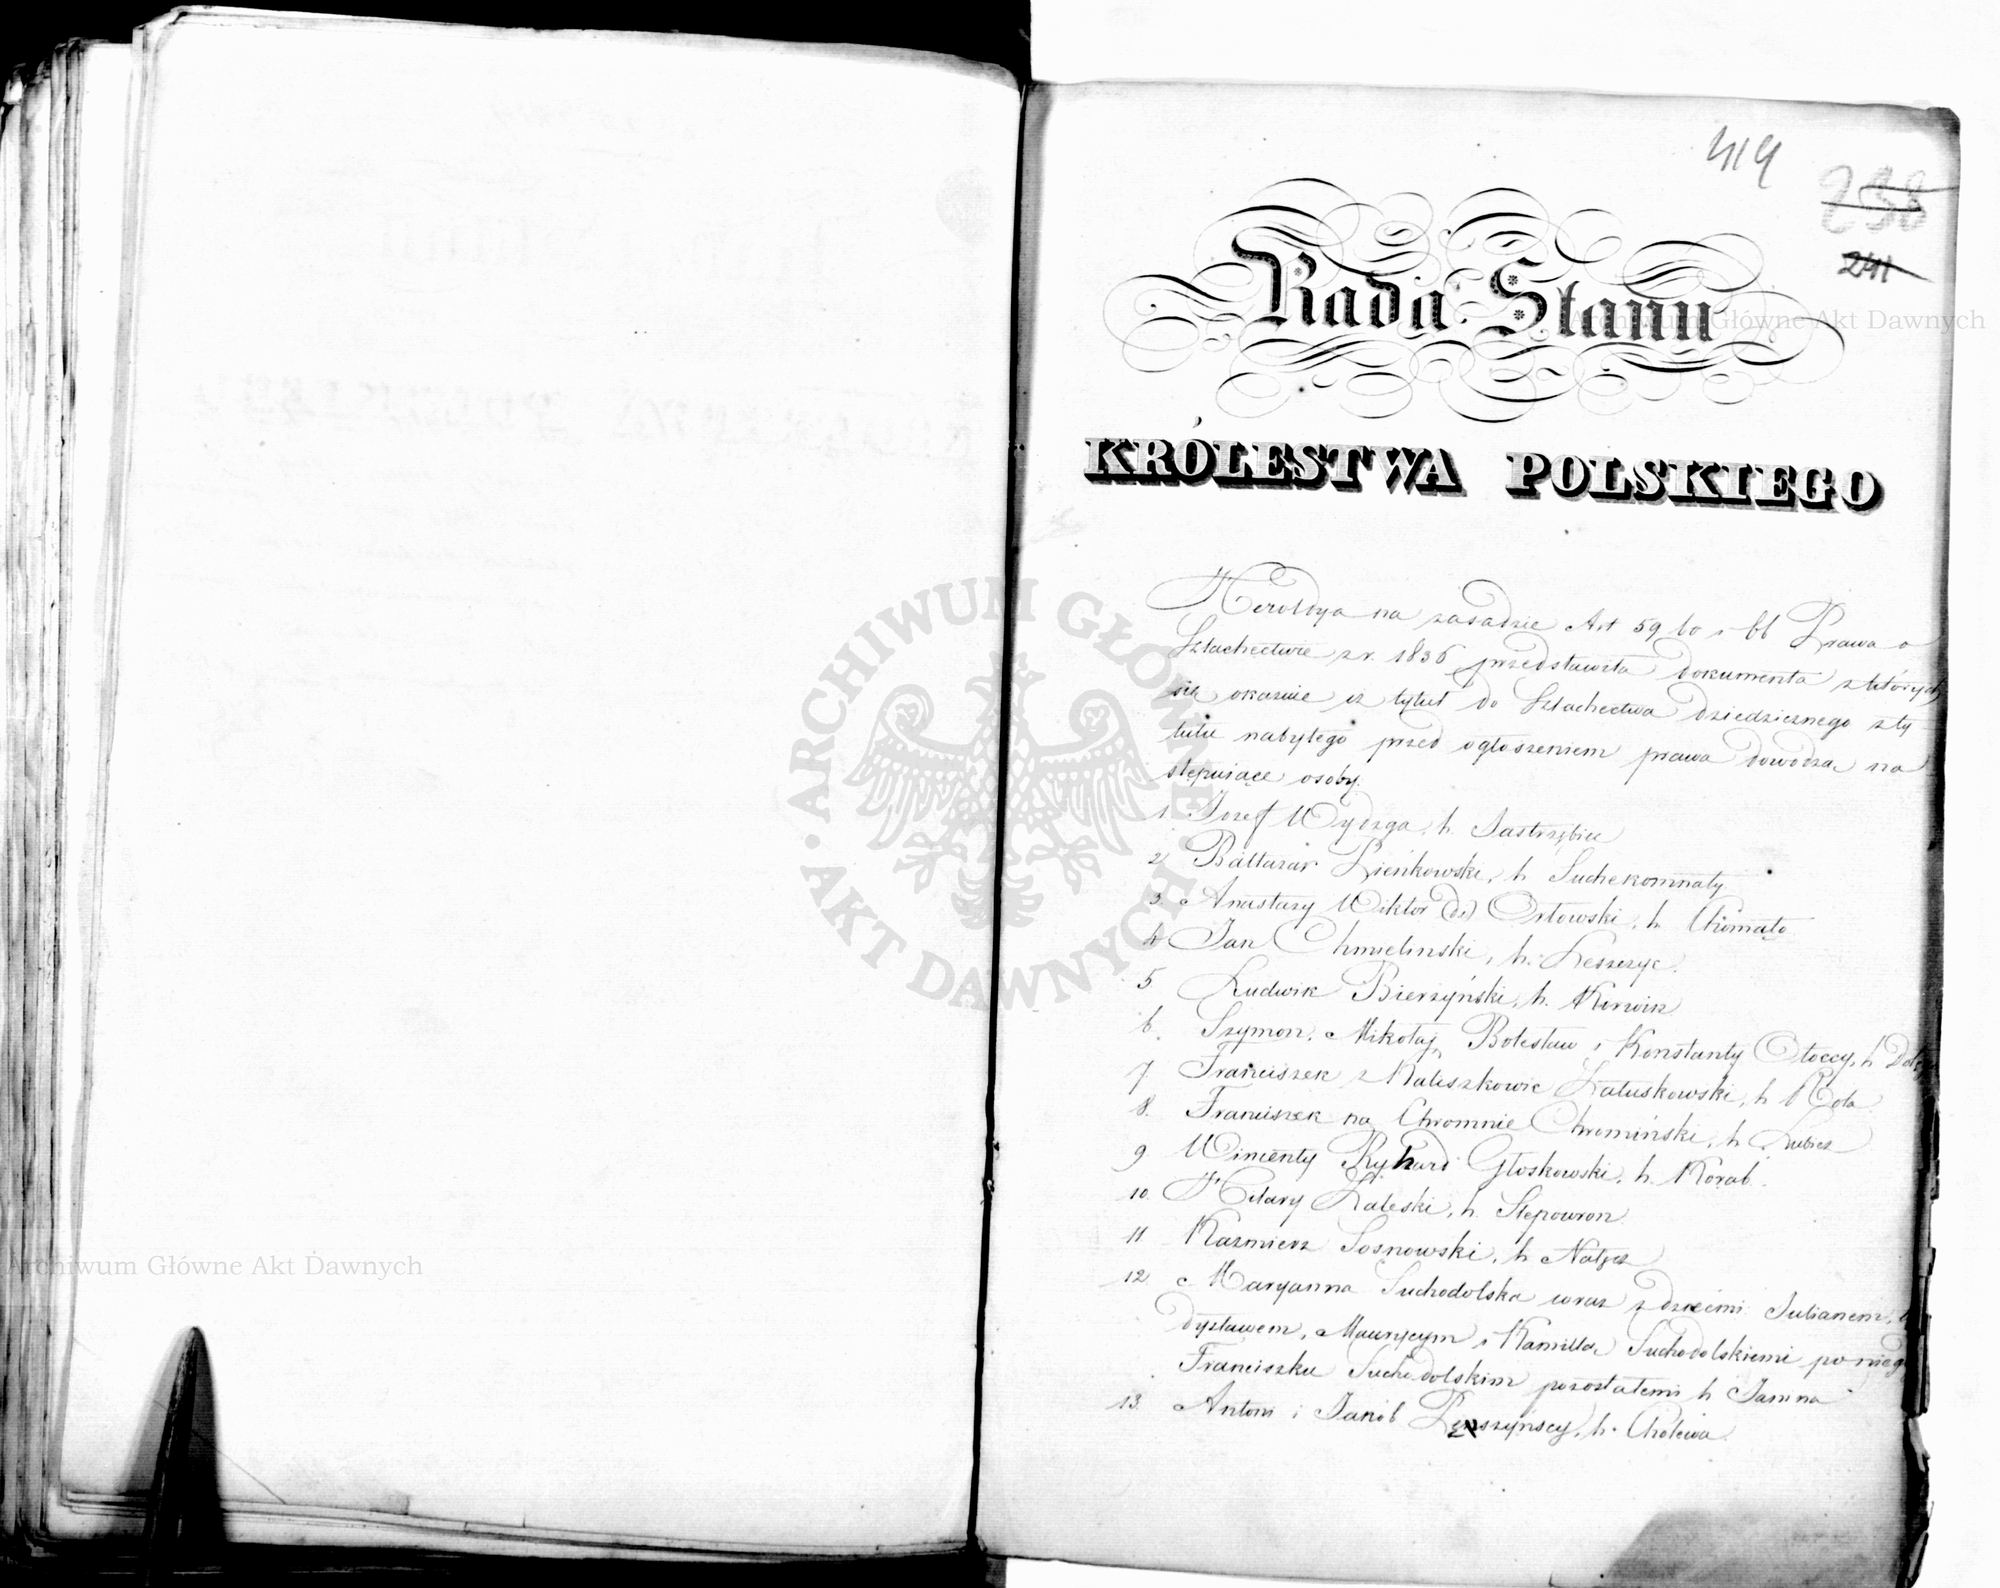 414
238
241
Rada Stanu
KRÓLESTWA POLSKIEGO
Heroldya na zasadzie Art 59 60 i 61 Prawa o
Szlachectwie z r. 1836 przedstawiła dokumenta z których
się okazuie iż tytuł do Szlachectwa dziedzicznego z ty-
tułu nabytego przed ogłoszeniem prawa dowodzą na
stępuiące osoby.
1. Jozef Wydzga, h. Jastrzębiec
2. Baltazar Zieńkowski, h. Suchekomnaty
3. Anastazy Wiktor (dw.) Orłowski, h. Chomąto
4 Jan Chmielinski, h. Leszczyc.
5. Ludwik Bierzyński, h. Kierdisz
6. Szymon, Mikołaj, Bolesław i Konstanty Otoccy, h Dołęga
7. Franciszek z Kaliszkowic Kaliszkowski, h Rola.
8. Franciszek na Chromnie Chromiński, h. Lubicz
9. Wincenty Ryhard Głoskowski, h. Korab.
10. Hilary Zaleski, h. Slepowron.
11 Kazmierz Sosnowski, h Nałęcz
12. Maryanna Suchodolska wraz z dziećmi Julianem,
dysławem, Maurycym i Kamillą Suchodolskiemi po niegdy
Franciszku Suchodolskim pozostałemi h Janina
13. Antoni i Jakób h. Cholewa.
Archiwum Główne Akt Dawnych
Archiwum Główne Akt Dawnych
ARCHIWUM GŁÓWNE AKT DAWNYCH